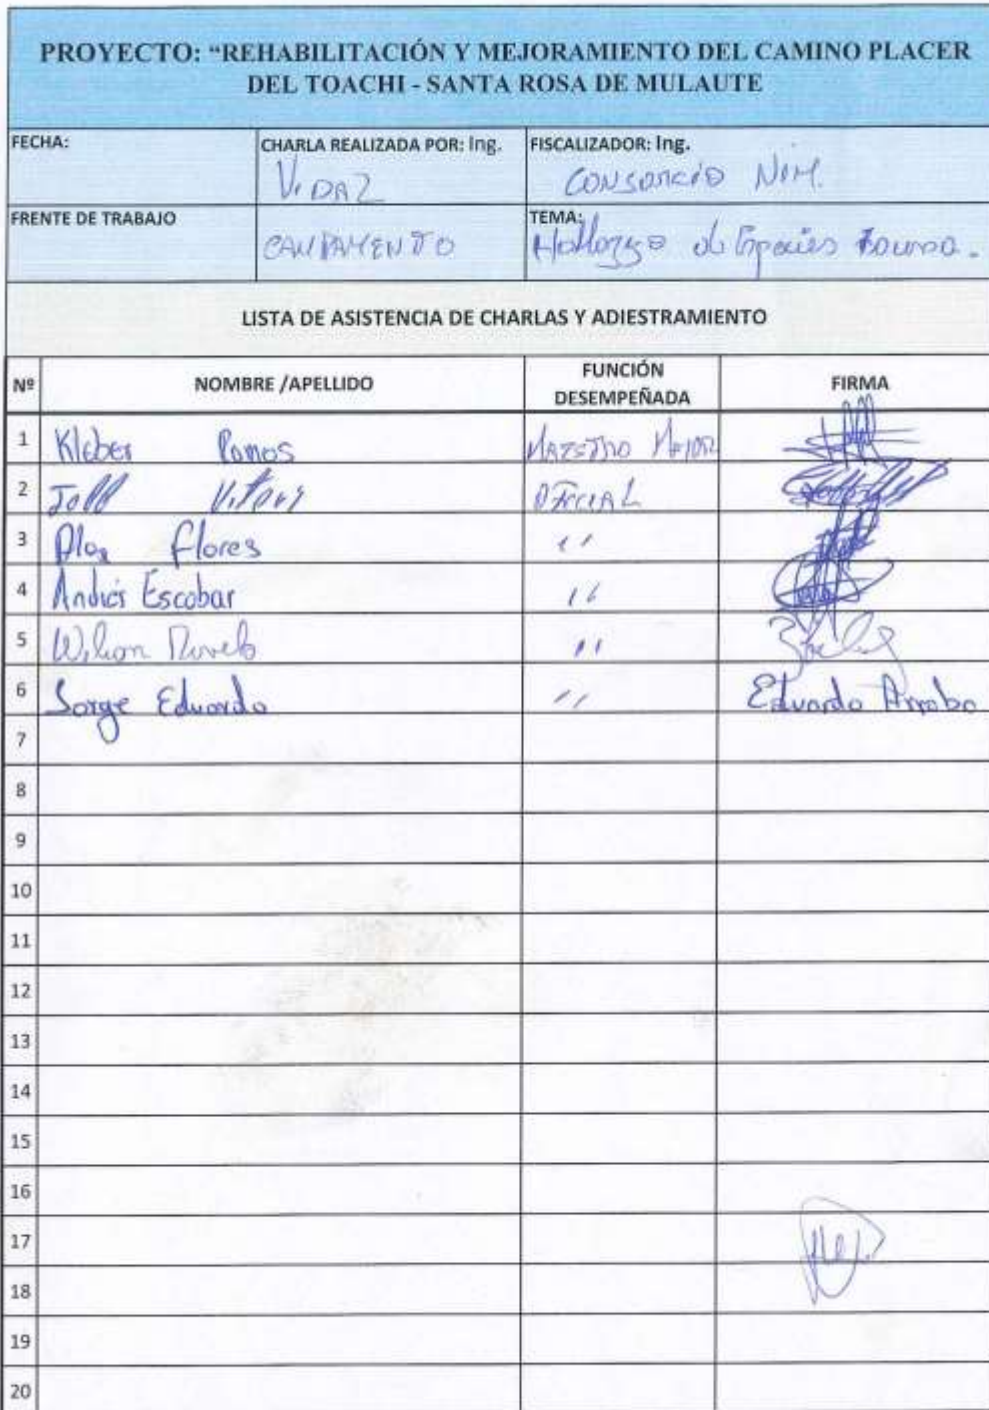 PROYECTO: “REHABILITACIÓN Y MEJORAMIENTO DEL CAMINO PLACER
DEL TOACHI - SANTA ROSA DE MULAUTE
FECHA:
CHARLA REALIZADA POR: Ing.
VIDAL
FISCALIZADOR: Ing.
CONSORCIO NIM.
FRENTE DE TRABAJO
CAMPAMENTO
TEMA:
Hallazgo de Especies
LISTA DE ASISTENCIA DE CHARLAS Y ADIESTRAMIENTO
Nº NOMBRE /APELLIDO FUNCIÓN DESEMPEÑADA FIRMA
1 Kleber Ramos MAESTRO MAYOR
2 OFICIAL
3 Flores ''
4 Andrés Escobar ''
5 Wilson ''
6 Jorge Eduardo '' Eduardo Arrobo
7
8
9
10
11
12
13
14
15
16
17
18
19
20